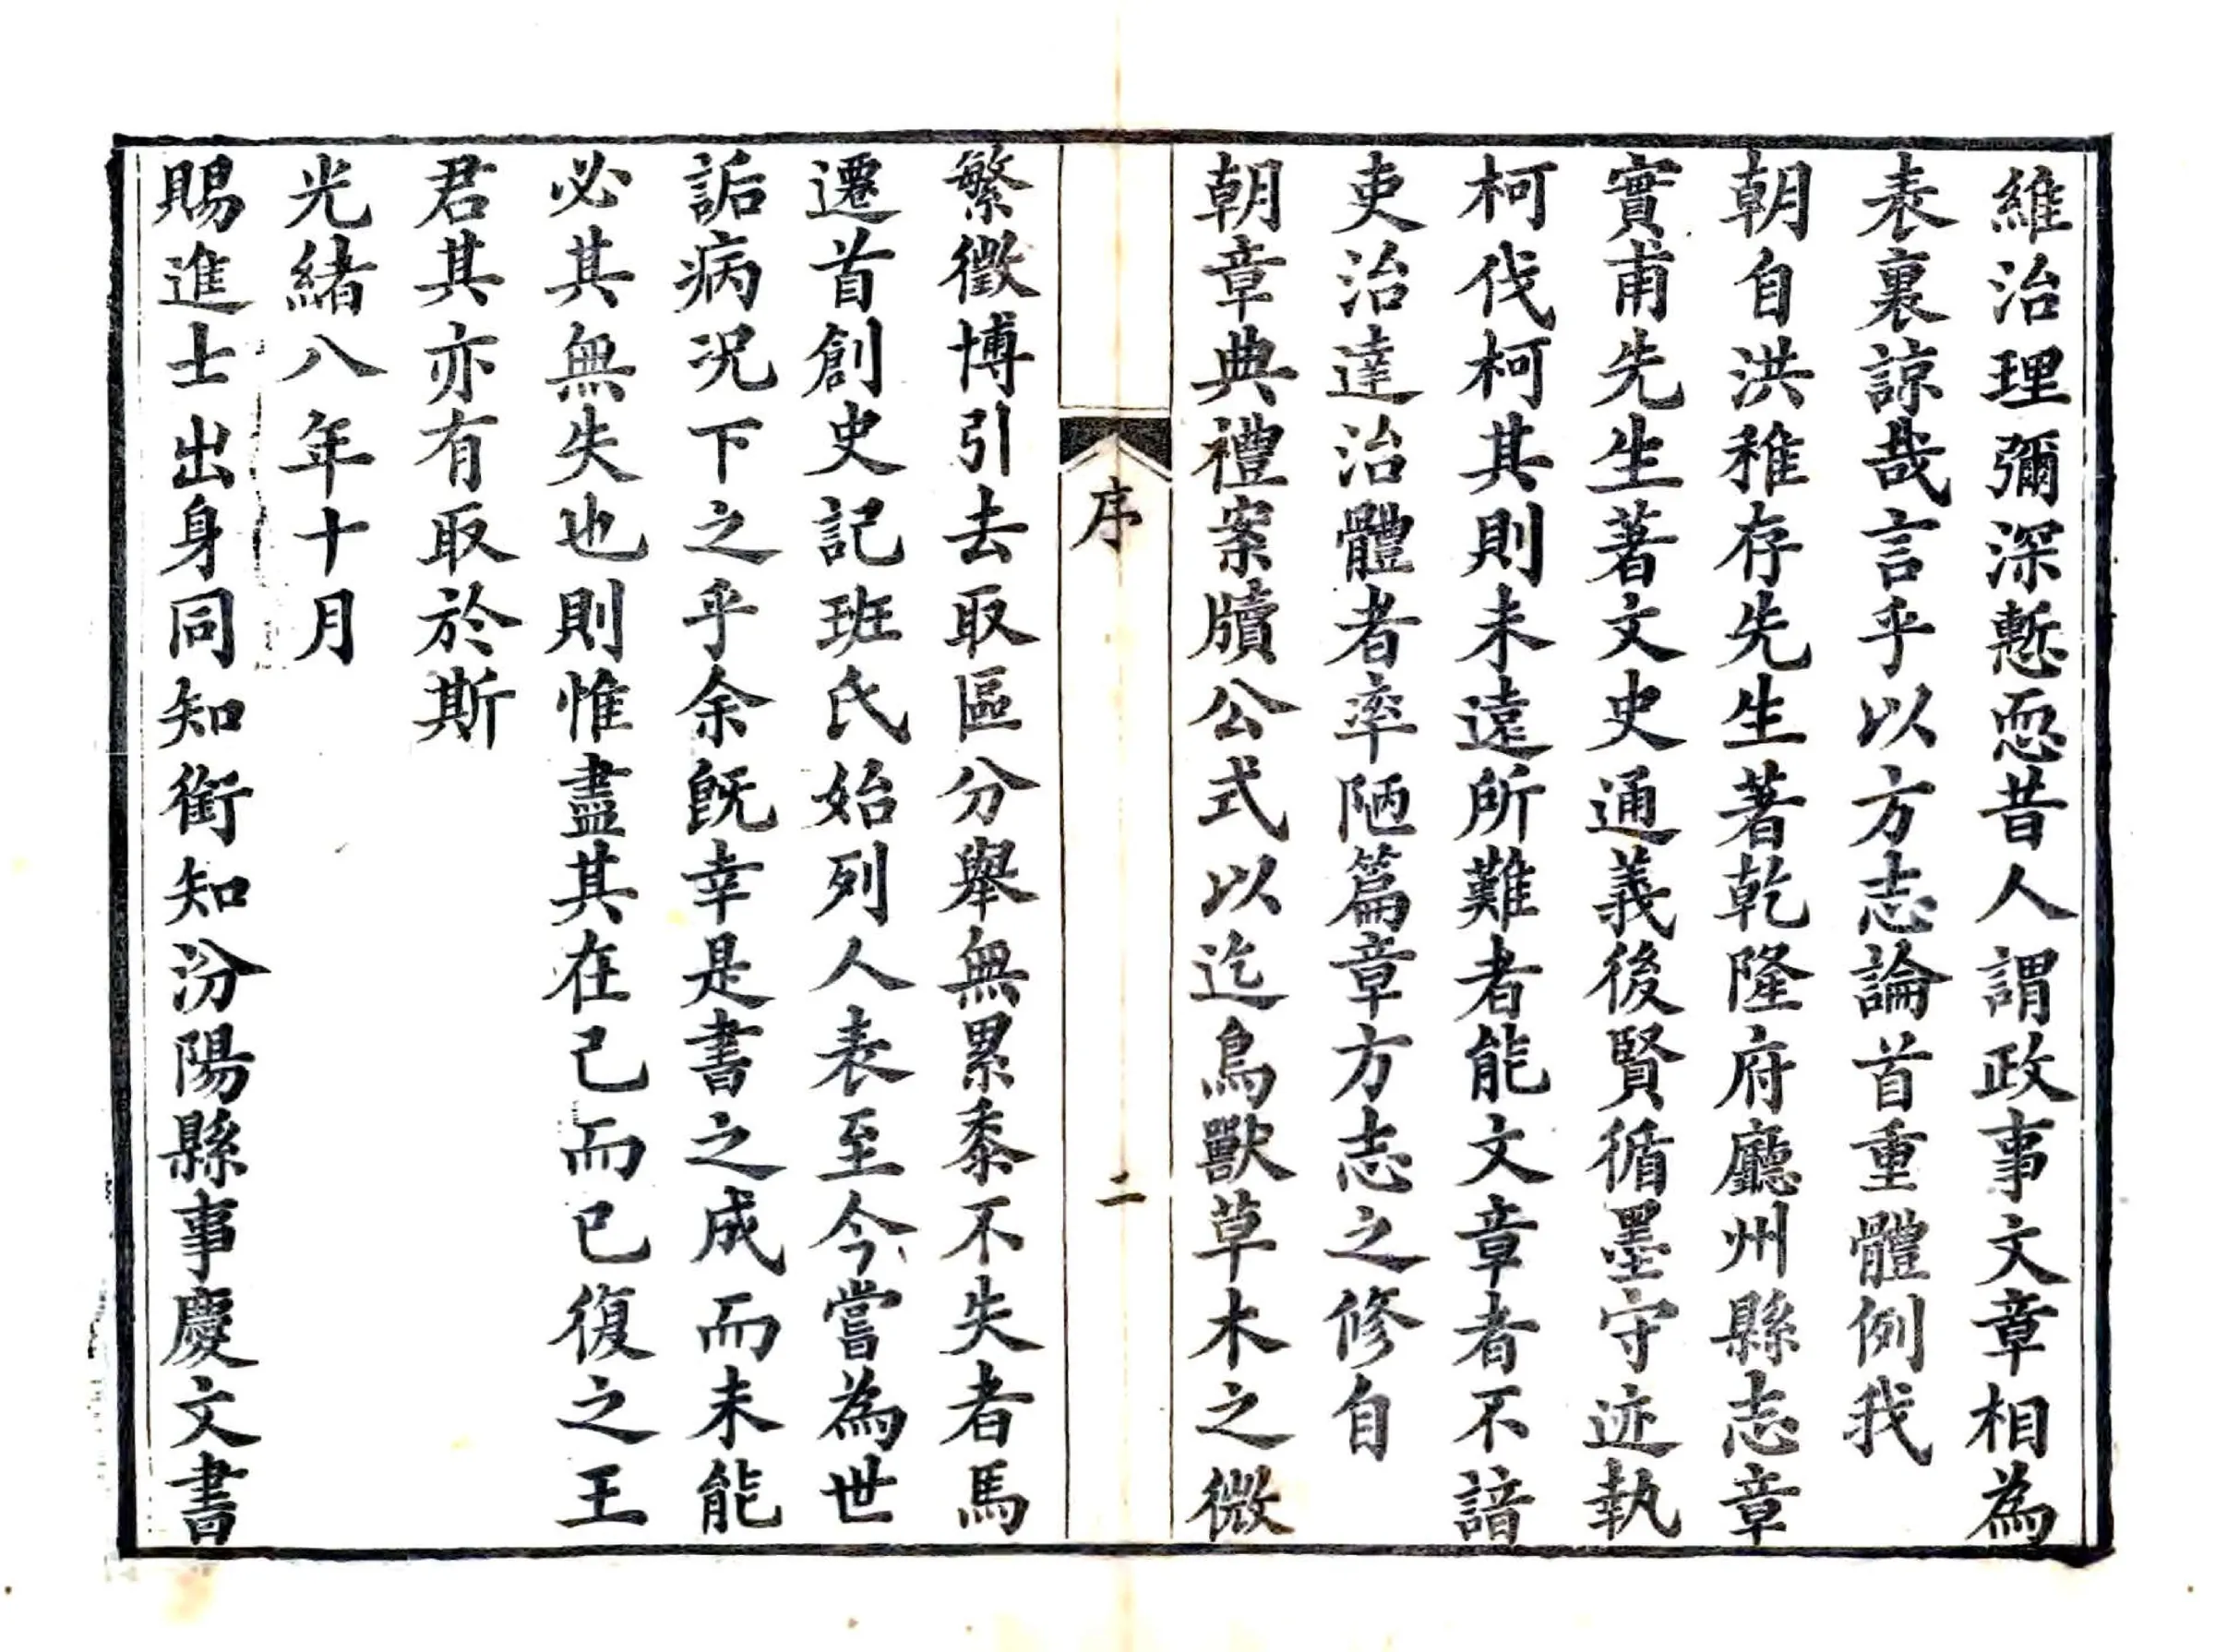 維治理彌深慙恧昔人謂政事文章相為
表裏諒哉言乎以方志論首重體例我
朝自洪稚存先生著乾隆府廳州縣志章
實甫先生著文史通義後賢循墨守迹執
柯伐柯其則未遠所難者能文章者不諳
吏治達治體者率陋篇章方志之修自
朝章典禮案牘公式以迄鳥獸草木之微
序
二
繁徵博引去取區分舉無累黍不失者馬
遷首創史記班氏始列人表至今嘗為世
詬病況下之乎余旣幸是書之成而未能
必其無失也則惟盡其在己而已復之王
君其亦有取於斯
光緒八年十月
賜進士出身同知銜知汾陽縣事慶文書